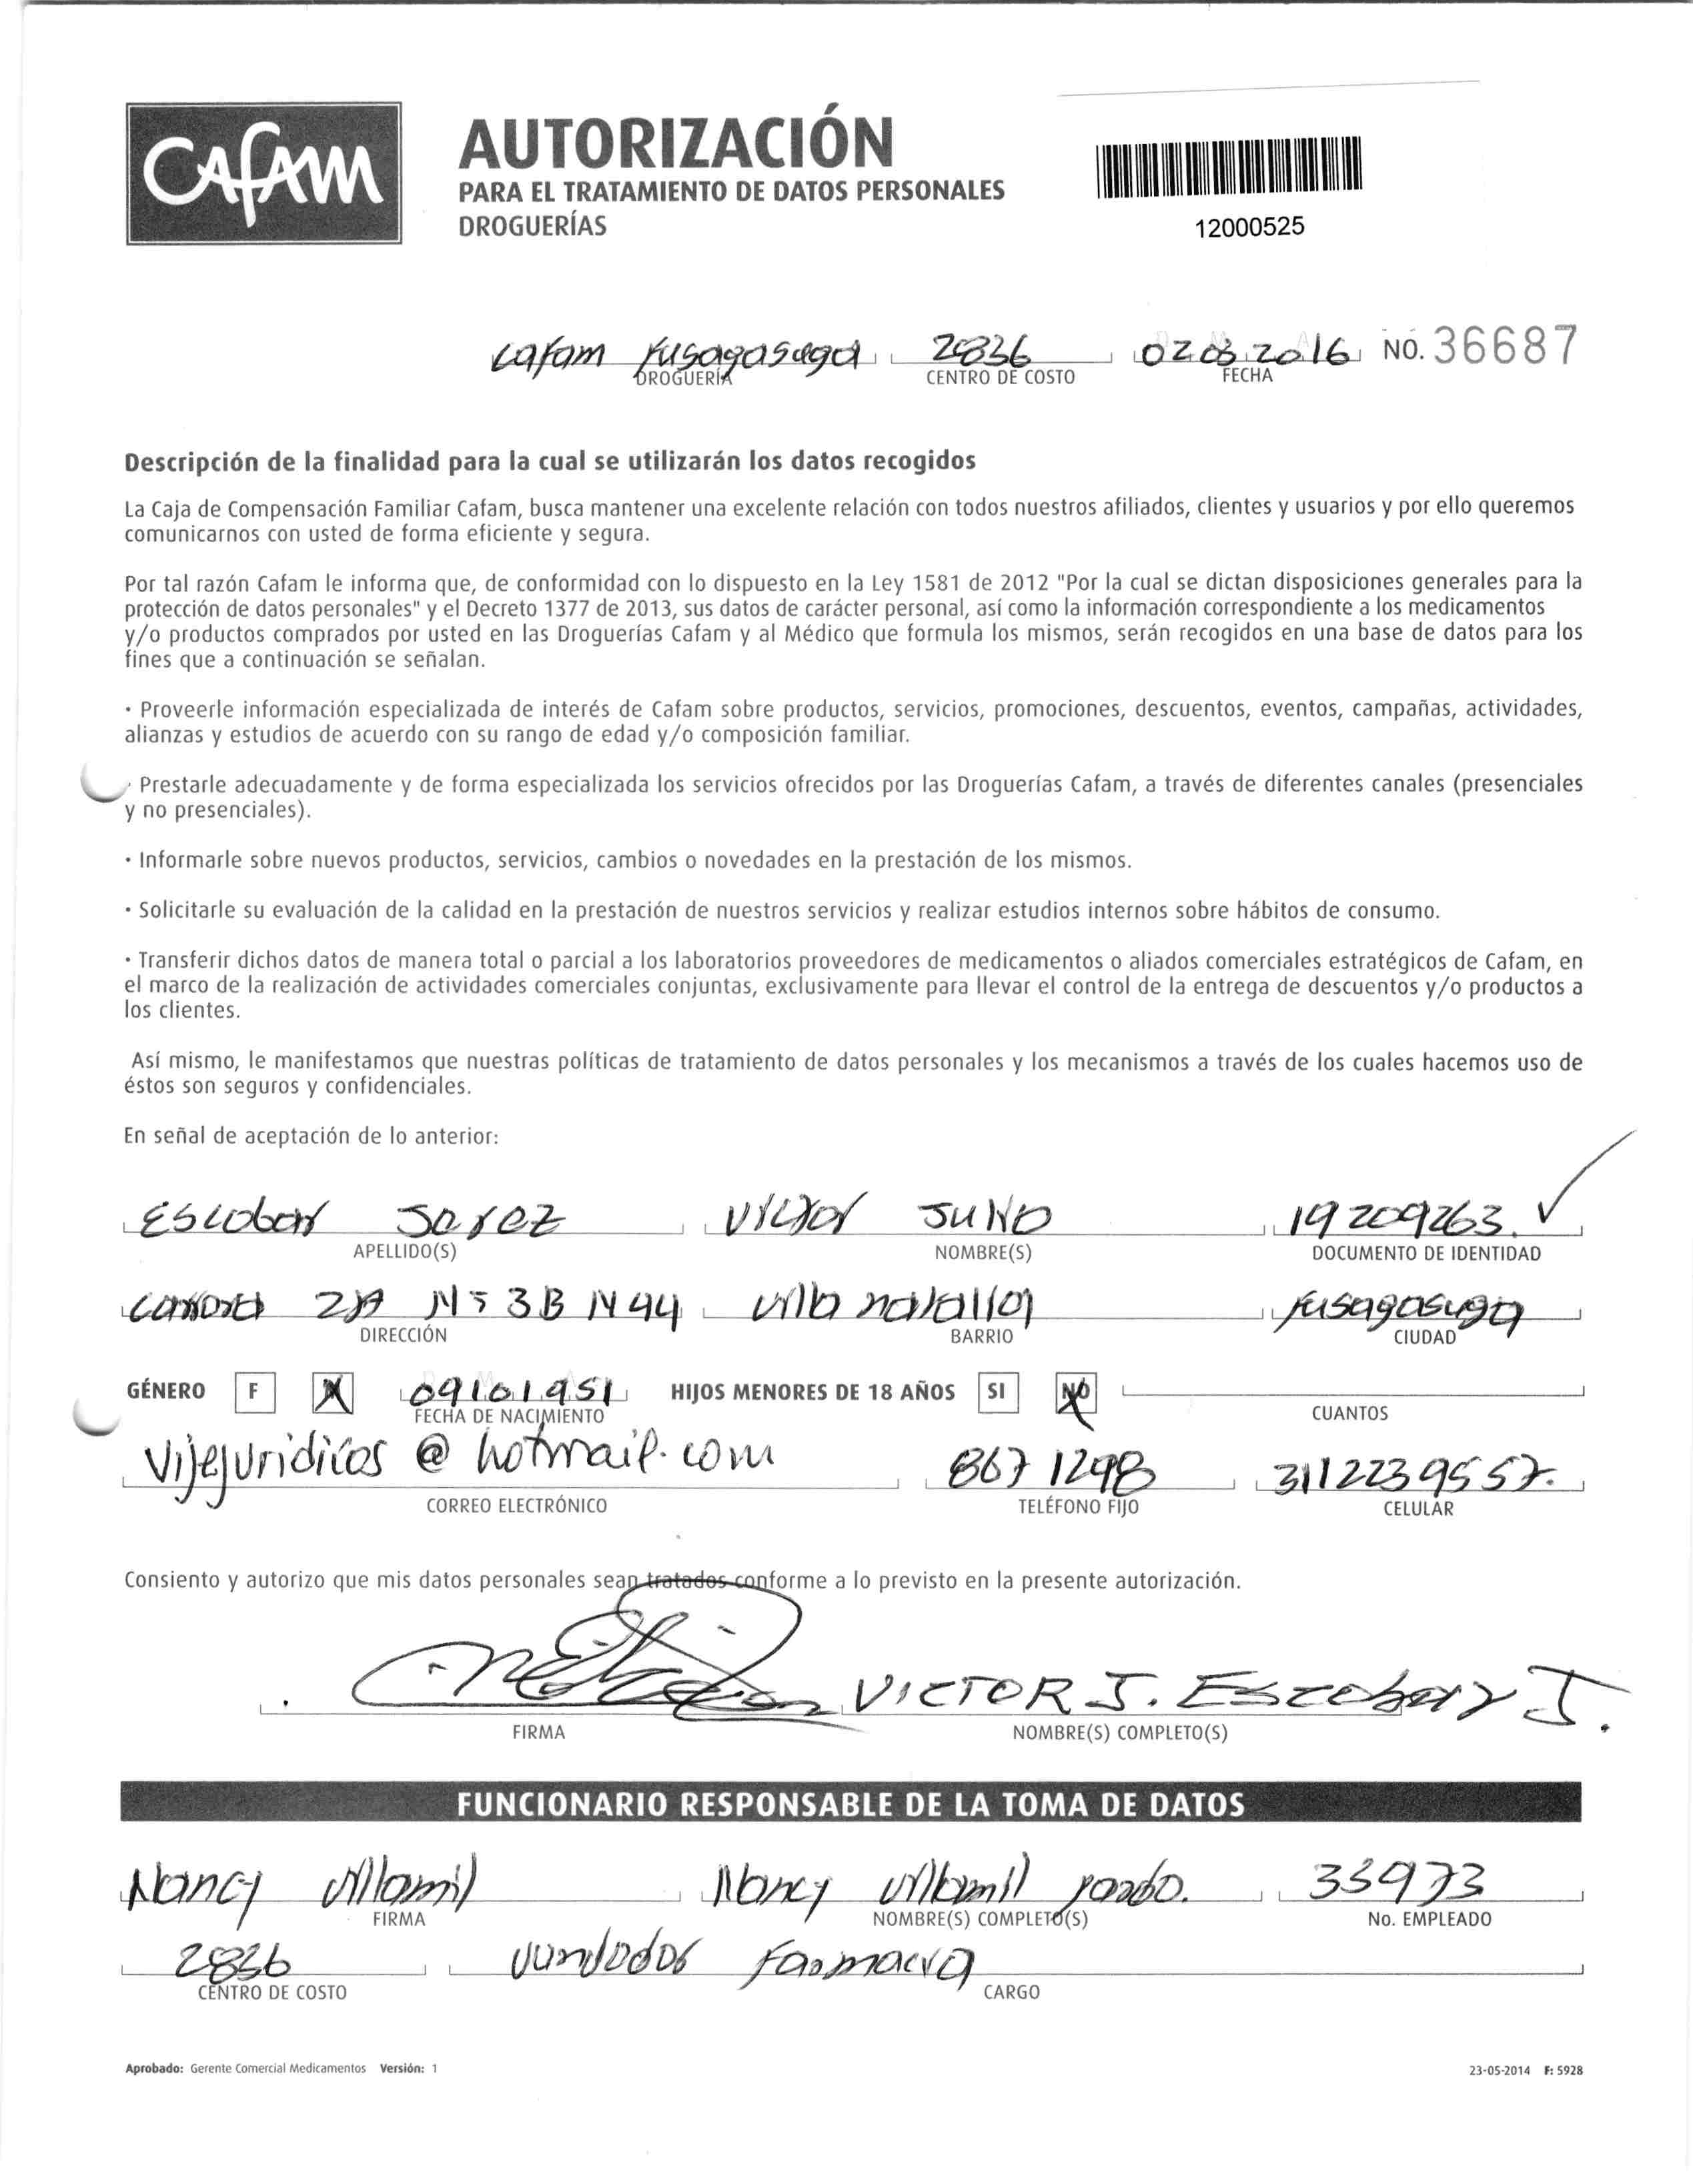 Cafam
AUTORIZACIÓN
PARA EL TRATAMIENTO DE DATOS PERSONALES
DROGUERÍAS
12000525
cafam fusagasuga 2836 02 03 2016 NO. 36687
DROGUERÍA CENTRO DE COSTO FECHA
Descripción de la finalidad para la cual se utilizarán los datos recogidos
La Caja de Compensación Familiar Cafam, busca mantener una excelente relación con todos nuestros afiliados, clientes y usuarios y por ello queremos
comunicarnos con usted de forma eficiente y segura.
Por tal razón Cafam le informa que, de conformidad con lo dispuesto en la Ley 1581 de 2012 "Por la cual se dictan disposiciones generales para la
protección de datos personales" y el Decreto 1377 de 2013, sus datos de carácter personal, así como la información correspondiente a los medicamentos
y/o productos comprados por usted en las Droguerías Cafam y al Médico que formula los mismos, serán recogidos en una base de datos para los
fines que a continuación se señalan.
· Proveerle información especializada de interés de Cafam sobre productos, servicios, promociones, descuentos, eventos, campañas, actividades,
alianzas y estudios de acuerdo con su rango de edad y/o composición familiar.
· Prestarle adecuadamente y de forma especializada los servicios ofrecidos por las Droguerías Cafam, a través de diferentes canales (presenciales
y no presenciales).
· Informarle sobre nuevos productos, servicios, cambios o novedades en la prestación de los mismos.
· Solicitarle su evaluación de la calidad en la prestación de nuestros servicios y realizar estudios internos sobre hábitos de consumo.
· Transferir dichos datos de manera total o parcial a los laboratorios proveedores de medicamentos o aliados comerciales estratégicos de Cafam, en
el marco de la realización de actividades comerciales conjuntas, exclusivamente para llevar el control de la entrega de descuentos y/o productos a
los clientes.
Así mismo, le manifestamos que nuestras políticas de tratamiento de datos personales y los mecanismos a través de los cuales hacemos uso de
éstos son seguros y confidenciales.
En señal de aceptación de lo anterior:
Escobar Victor Julio 19209263.
APELLIDO(S) NOMBRE(S) DOCUMENTO DE IDENTIDAD
carrera 3B N 44 villa natalia fusagasuga
DIRECCIÓN BARRIO CIUDAD
GÉNERO F 09101951 HIJOS MENORES DE 18 AÑOS SI NO
FECHA DE NACIMIENTO CUANTOS
vijejuridicos @ hotmail.com 867 1298 3112239557.
CORREO ELECTRÓNICO TELÉFONO FIJO CELULAR
Consiento y autorizo que mis datos personales sean tratados conforme a lo previsto en la presente autorización.
VICTOR J. Escobar J.
FIRMA NOMBRE(S) COMPLETO(S)
FUNCIONARIO RESPONSABLE DE LA TOMA DE DATOS
Nancy villamil Nancy villamil pardo. 33973
FIRMA NOMBRE(S) COMPLETO(S) No. EMPLEADO
2836 farmacia
CENTRO DE COSTO CARGO
Aprobado: Gerente Comercial Medicamentos Versión: 1 23-05-2014 F: 5928